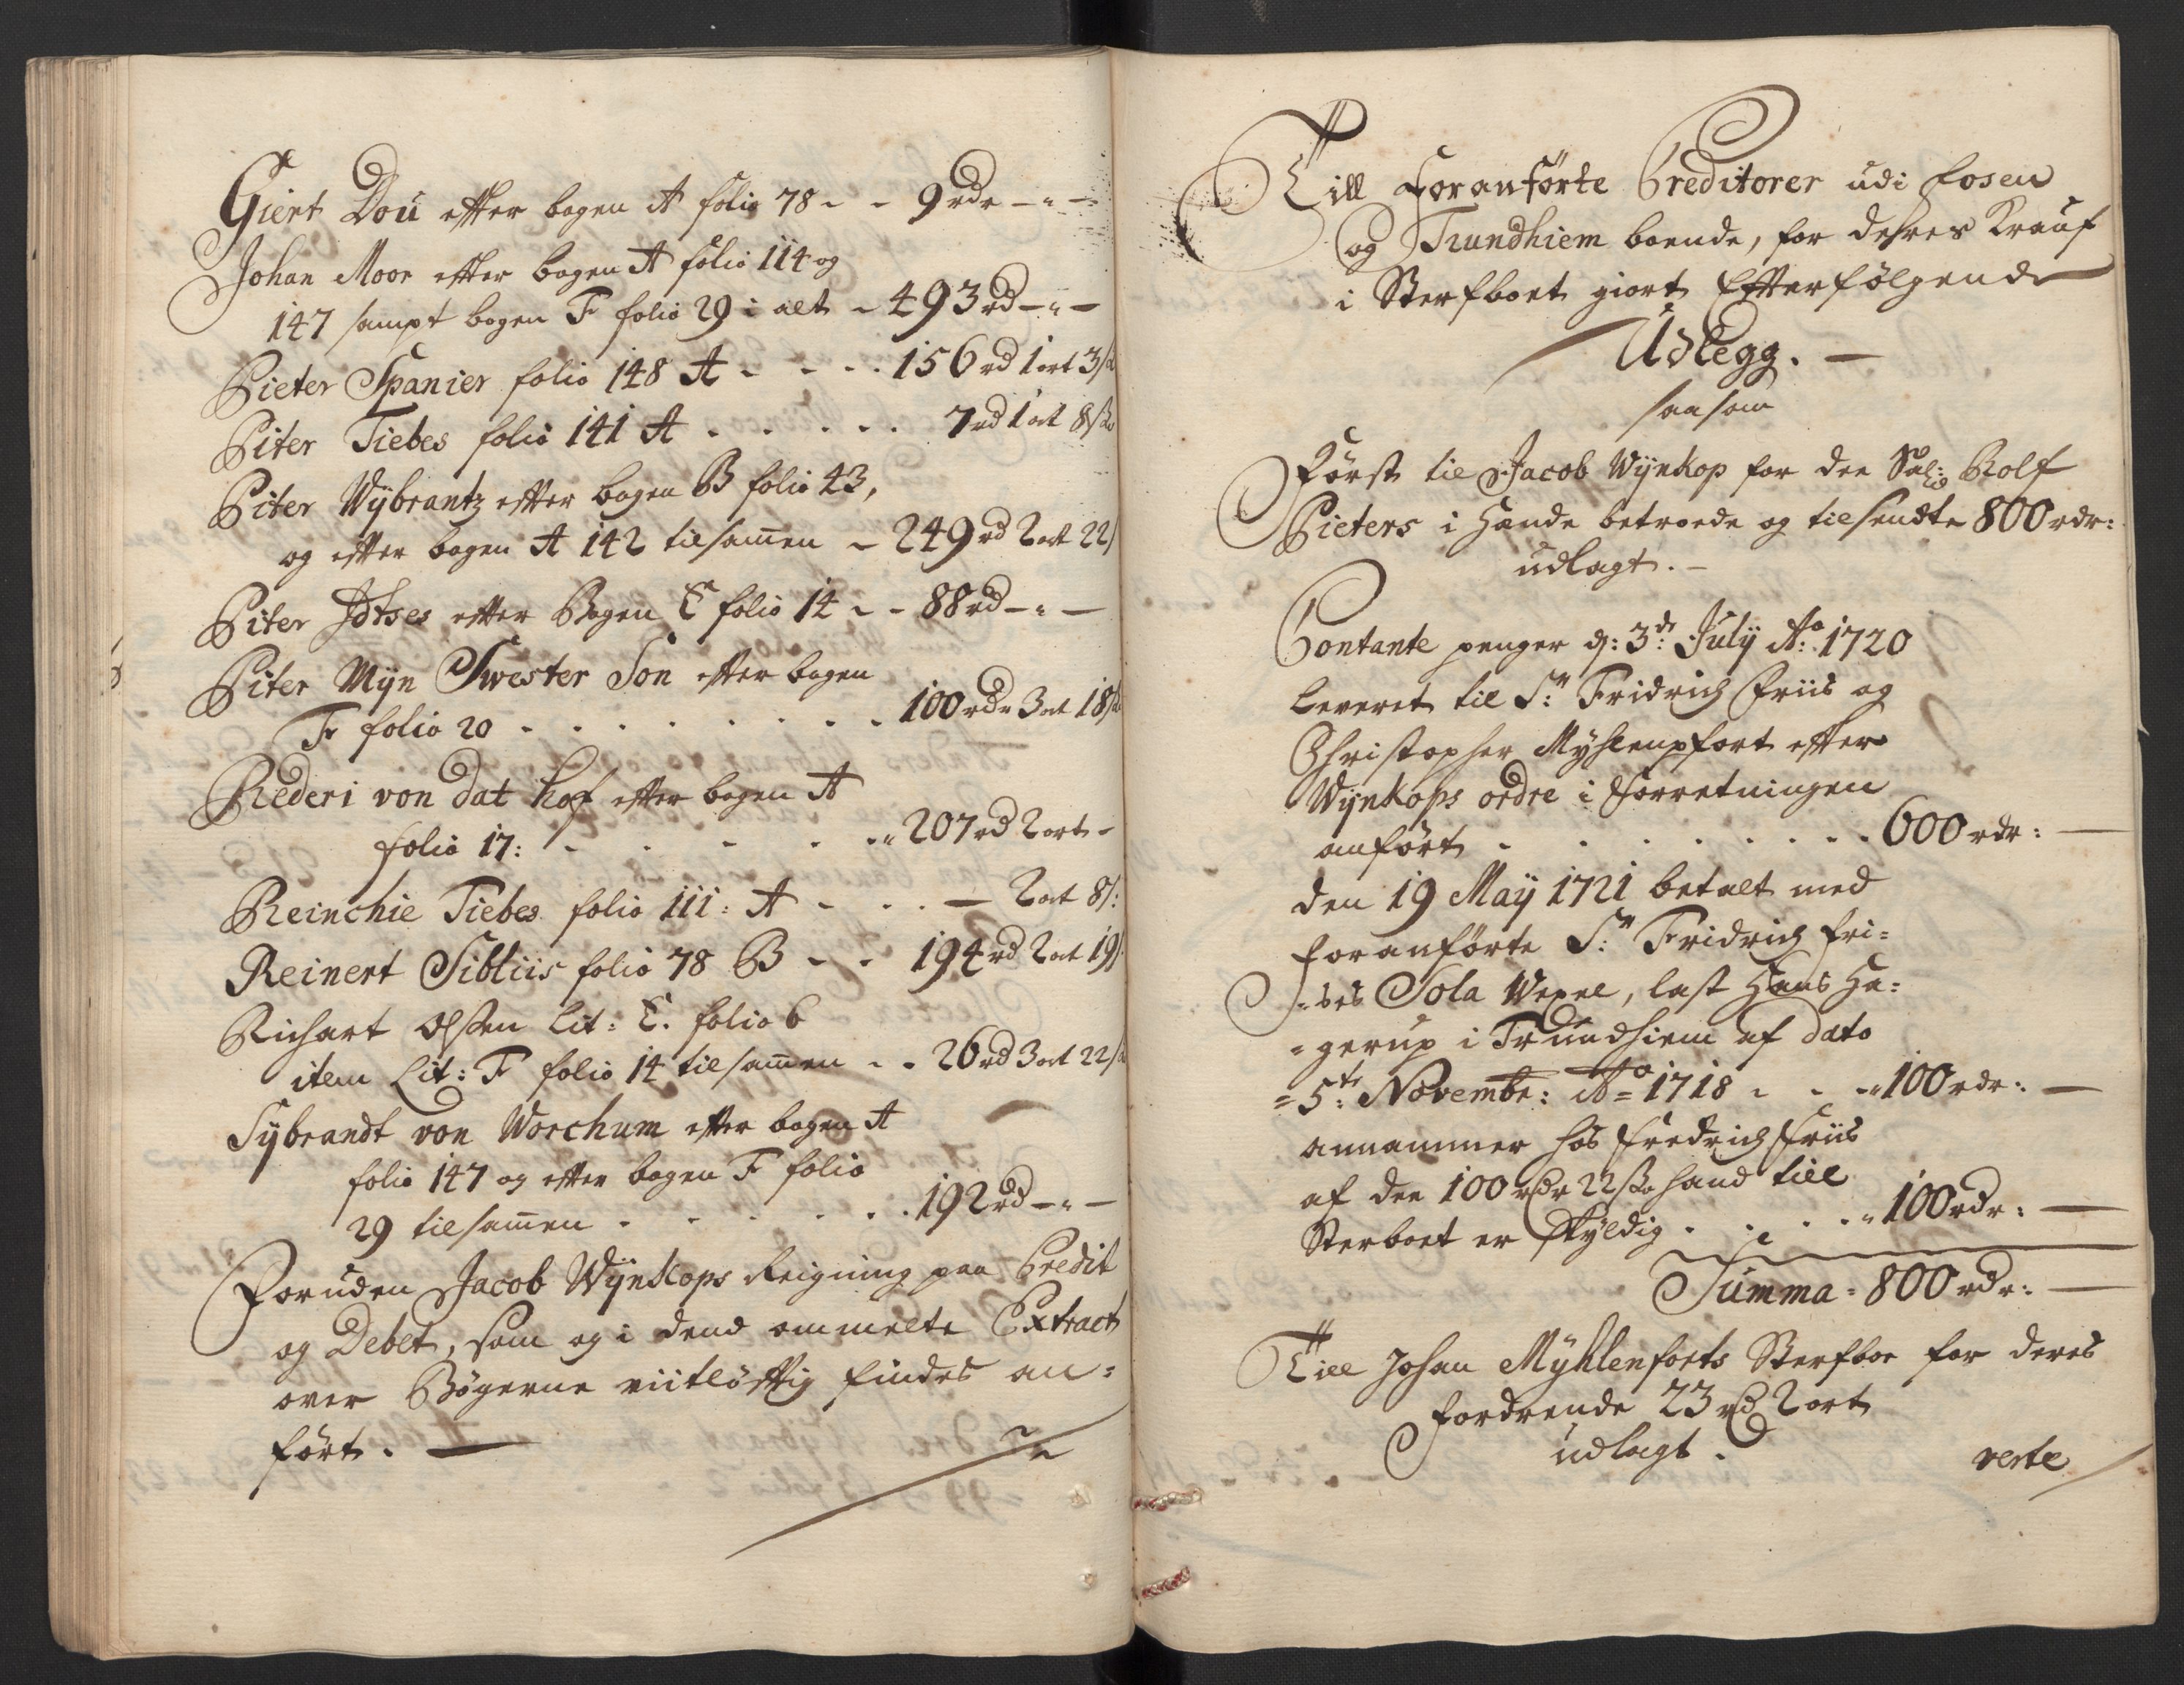 Giert Dou efter bogen A folio 78 - - 9 rdr - " -
Johan Moor efter bogen A folio 114 og
147 sampt bogen F folio 29 i alt - 493 rd - " -
Pieter Spanier folio 148 A - - - - 156 rd 1 ort 3 s
Piter Tiebes folio 141 A . . . . . 7 rd 1 ort 8 s
Piter Wÿbrantz efter bogen B folio 43,
og efter bogen A 142 tilsam̄en - 249 rd 2 ort 22 s
Piter Idtses efter Bogen E folio 14 - - 88 rd - " -
Piter Mÿn Swester Son efter bogen
F folio 20 - - - - - - - - - 100 rdr 3 ort 18 s
Rederi von dat hof efter bogen A
folio 17: - - - - - " 207 rd 2 ort -
Reinchie Tiebes folio 111: A - - . - 2 ort 8 s:
Reinert Sibliis folio 78 B - - 194 rd 2 ort 19 s
Richart Olssen Lit: E. folio 6
item Lit: F folio 14 tilsam̄en - - 26 rd 3 ort 22 s
Sÿbrandt von Worchum efter bogen A
folio 147 og efter bogen F folio
29 tilsam̄en . . . . . . . 192 rd - " -
Foruden Jacob Wÿnkops Reigning paa Credit
og Debet, som og i dend ommelte Extract
over Bøgerne viitløftig findes an-
ført. -
Till Foranførte Creditorer udi Fosen
og Trundhiem boende, for dehres Krauf
i Sterfboet giort Efterfølgende
Udlegg. -
saasom
Først til Jacob Wÿnkop for dee Sal: Rolf
Pieters i Hænde betroede og tilsendte 800 rdr:
udlagt. -
Contante penger d: 3de Julÿ Ao: 1720
leveret til Sr: Fridrich Friis og
Christopher Mÿhlenpfort efter
Wÿnkops ordre i Forretningen
anført . . . . . . . . . 600 rdr: -
den 19 Maÿ 1721 betalt med
foranførte Sr: Fridrich Fri=
=ses Sola Wexel, last Hans Ha=
=gerup i Trundhiem af dato
=5te: Novembr: Ao= 1718 - - - " 100 rdr: -
annammer hos Fredrich Friis
af dee 100 rdr 22 s hand till
Sterboet er skÿldig . . . . . " 100 rdr: -
Summa - 800 rdr: -
Till Johan Mÿhlenforts Sterfboe for deres
fordrende 23 rd 2 ort
udlagt.
verte